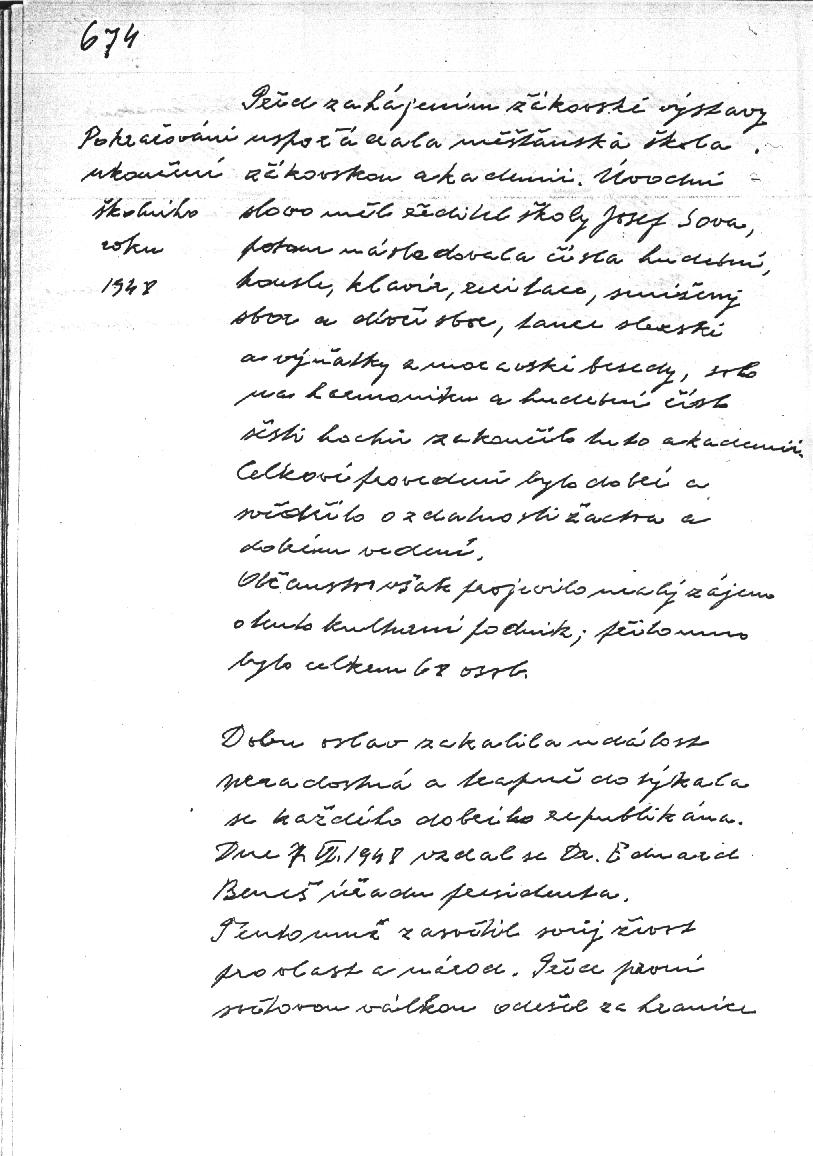 674
Před zahájením žákovské výstavy
Pokračování uspořádala měšťanská škola
ukončení žákovskou akademii. Úvodní
školního slovo měl ředitel školy Josef Sova,
roku potom následovala čísla hudební,
1948 housle, klavír, recitace, smíšený
sbor a dívčí sbor, tance slezské
a výňatky z moravské besedy, solo
na harmoniku a hudební číslo
šesti hochů zakončilo tuto akademii.
Celkové provedení bylo dobré a
svědčilo o zdatnosti žactva a
dobrém vedení.
Občanstvo však projevilo malý zájem
o tento kulturní podnik; přítomno
bylo celkem 68 osob.
Dobu oslav zakalila událost
neradostná a trapně dotýkala
se každého dobrého republikána.
Dne 7. VI. 1948 vzdal se Dr. Eduard
Beneš úřadu presidenta.
Tento muž zasvětil svůj život
pro vlast a národ. Před první
světovou válkou odešel za hranice